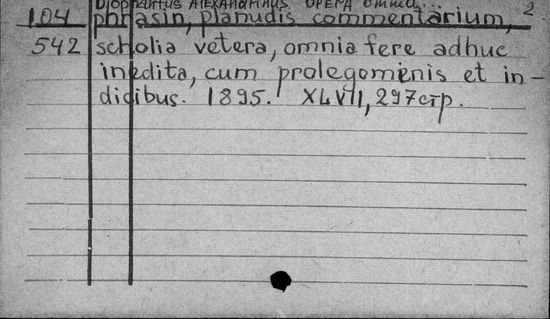 Diophantus Alexandrinus. Opera omnia... 2
104 phrasin, planudis commentarium,
542 scholia vetera, omnia fere adhuc
inedita, cum prolegomenis et in-
dicibus. 1895. XLVII, 297стр.